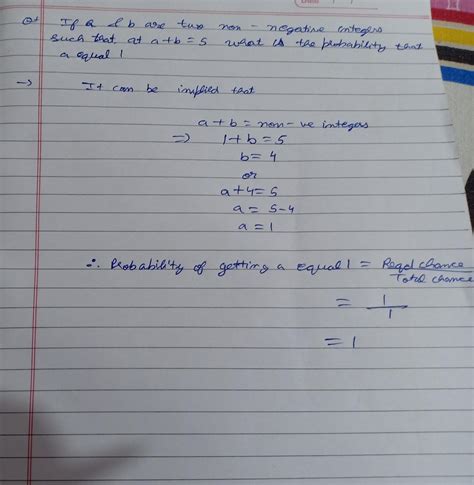 Q1 If a & b are two non-negative integers
such that at a+b=5 what is the probability that
a equal 1
→ It can be implied that
a+b = non-ve integers
⇒ 1+b=5
b=4
or
a+4=5
a = 5-4
a = 1
∴ Probability of getting a equal 1 = Reqd chance/Total chance
= 1/1
= 1